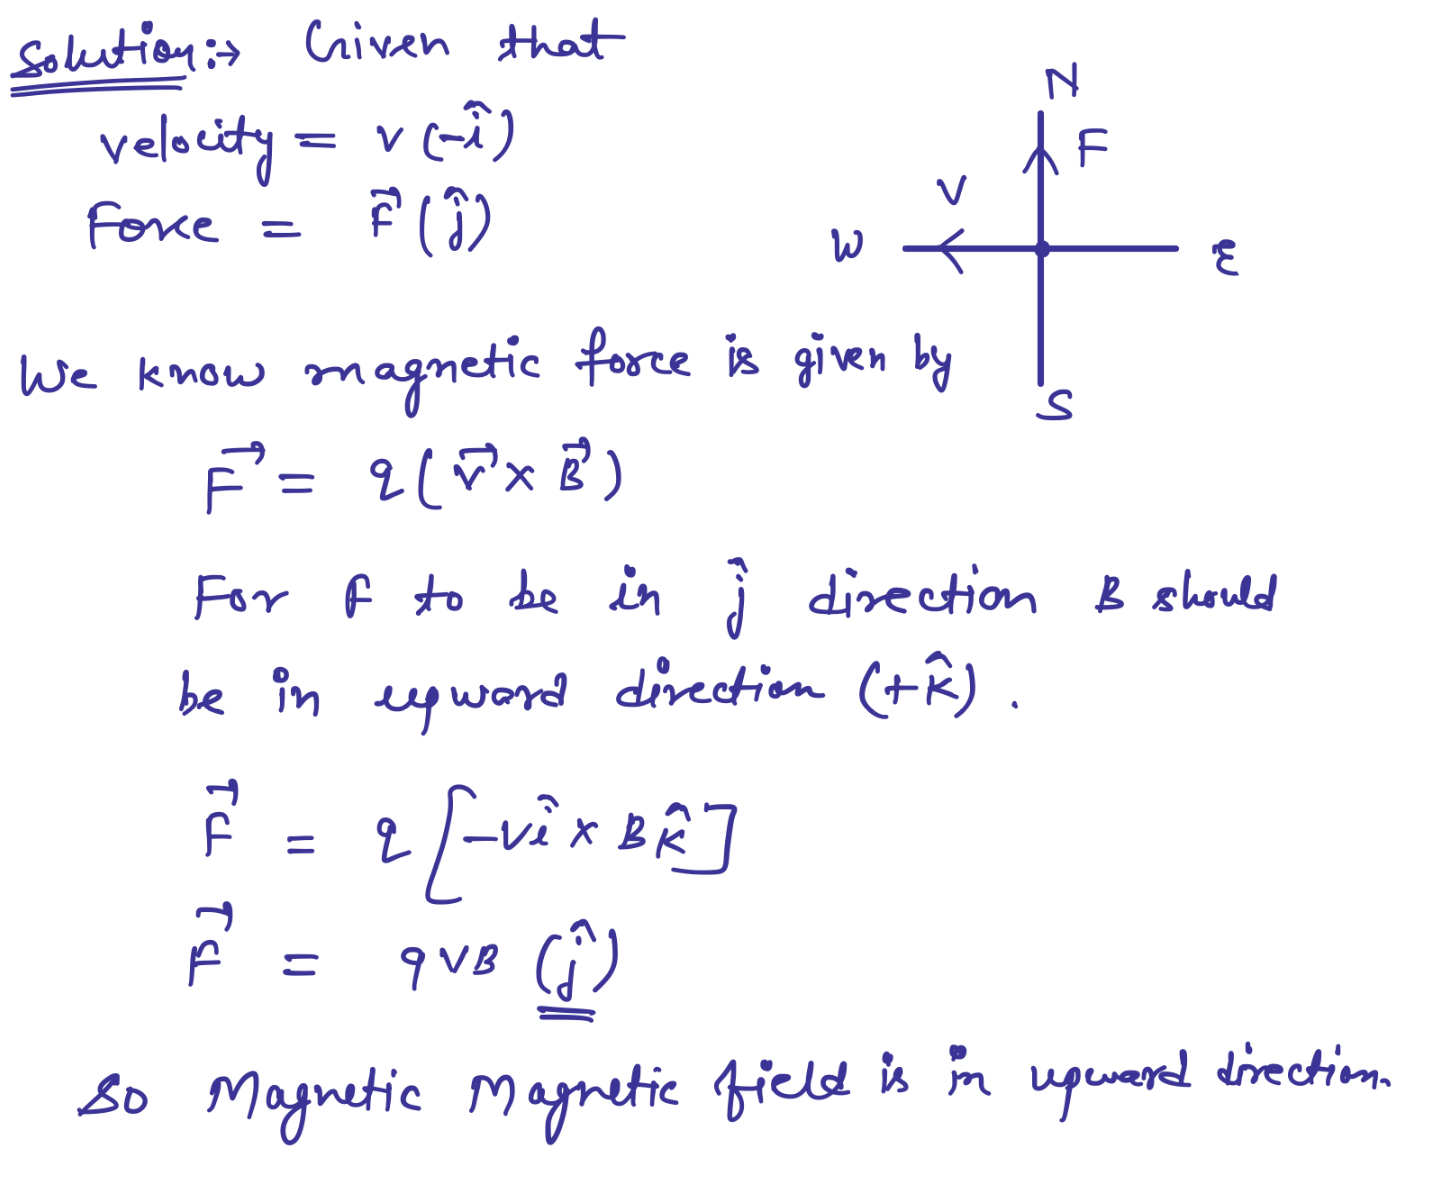 Solution:→ Given that
velocity = v (-î)
Force = F⃗ (ĵ)
N
F
V
W
E
S
We know magnetic force is given by
F⃗ = q (v⃗ × B⃗)
For F to be in ĵ direction B should
be in upward direction (+k̂).
F⃗ = q [-vî × Bk̂]
F⃗ = qvB (ĵ)
So Magnetic Magnetic field is in upward direction.